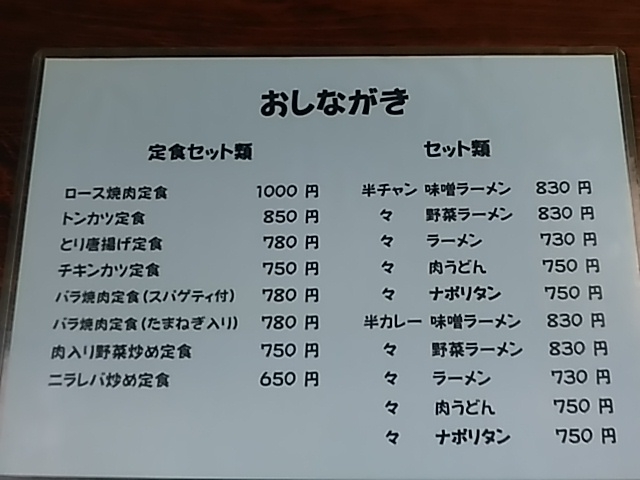 おしながき
定食セット類
ロース焼肉定食 1000 円
トンカツ定食 850 円
とり唐揚げ定食 780 円
チキンカツ定食 750 円
バラ焼肉定食(スパゲティ付) 780 円
バラ焼肉定食(たまねぎ入り) 780 円
肉入り野菜炒め定食 750 円
ニラレバ炒め定食 650 円
セット類
半チャン 味噌ラーメン 830 円
々 野菜ラーメン 830 円
々 ラーメン 730 円
々 肉うどん 750 円
々 ナポリタン 750 円
半カレー 味噌ラーメン 830 円
々 野菜ラーメン 830 円
々 ラーメン 730 円
々 肉うどん 750 円
々 ナポリタン 750 円